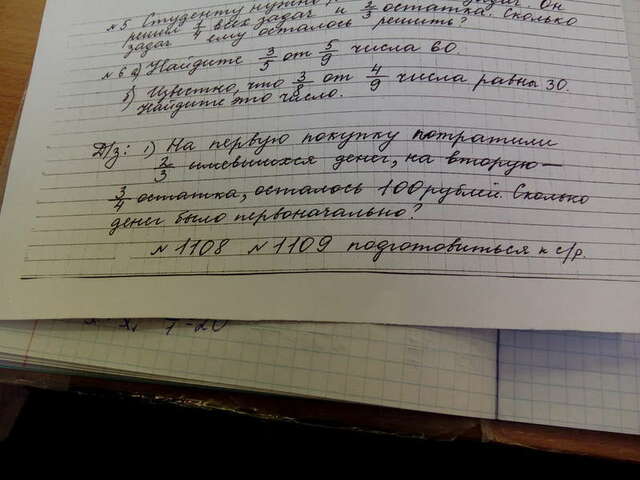 №5 Студенту нужно задач. Он
решил 1/4 всех задач и 2/3 остатка. Сколько
задач ему осталось решить?
№6 а) Найдите 3/5 от 5/9 числа 60.
б) Известно, что 3/8 от 4/9 числа равны 30.
Найдите это число.
Д/з: 1) На первую покупку потратили
2/3 имевшихся денег, на вторую –
3/4 остатка, осталось 100 рублей. Сколько
денег было первоначально?
№1108 №1109 подготовиться к с/р.
7 - 20